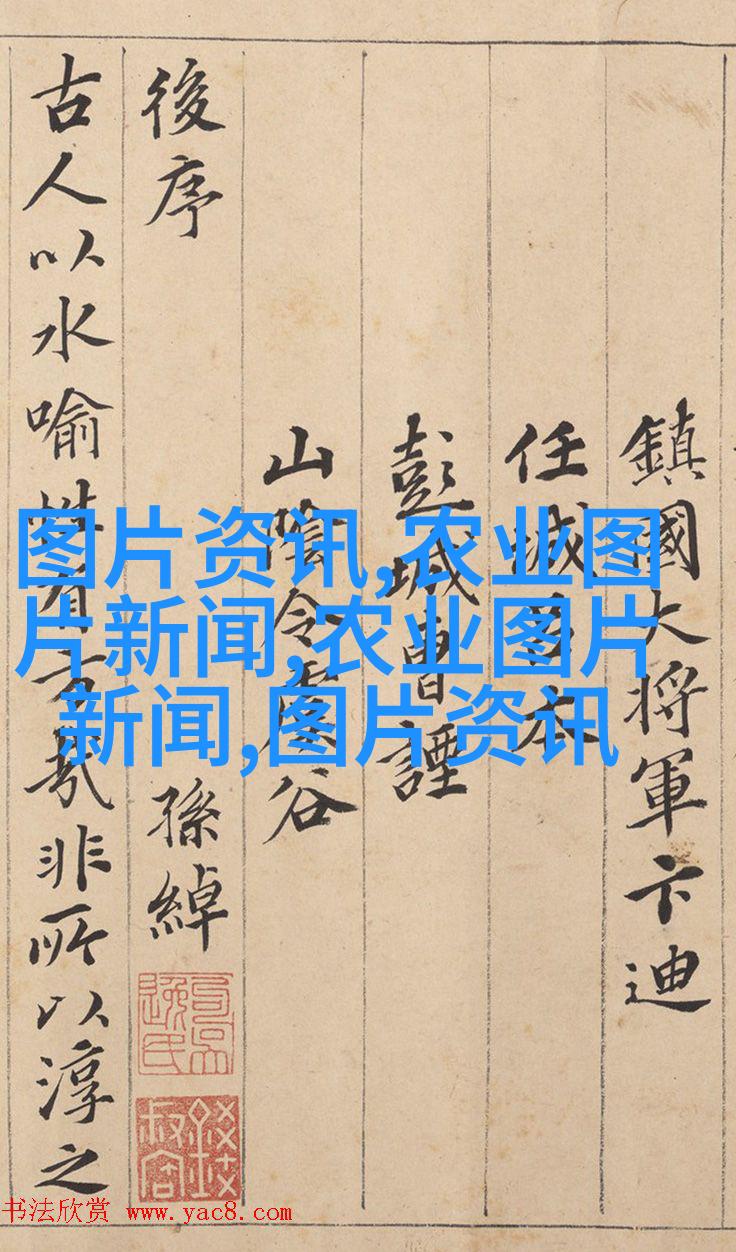 鎮國大将軍卞迪
任城本
彭城曹諲
山陰令虞谷
後序
孫綽
古人以水喻性有哉非所以淳之
图片资讯,农业图
片新闻,农业图片
新闻,图片资讯
书法欣赏 www.yac8.com